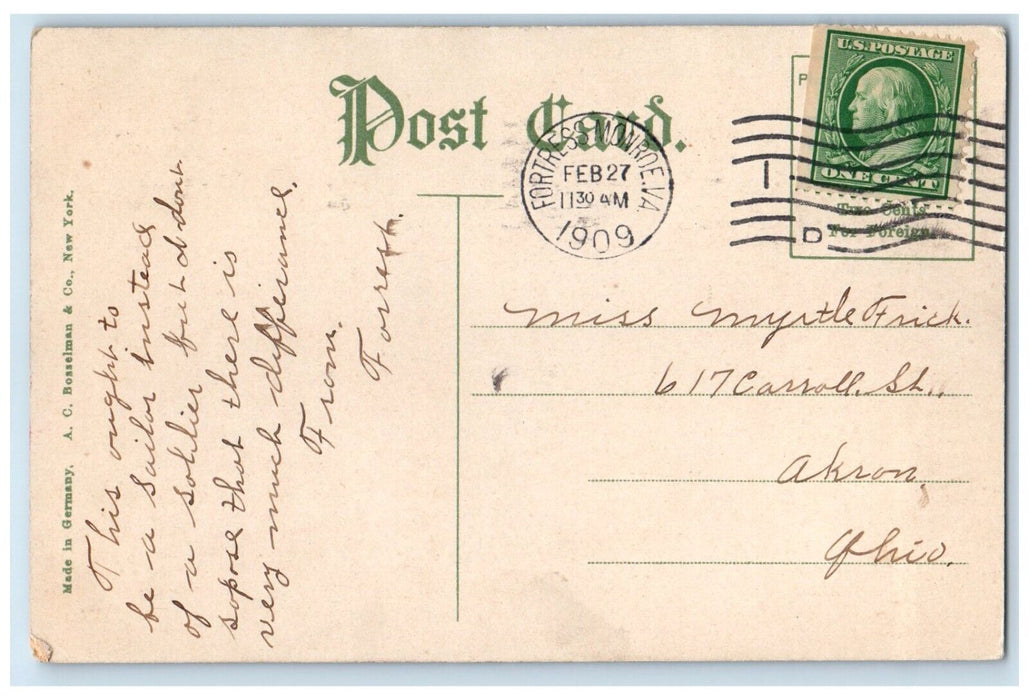 Post Card.
U.S. POSTAGE
ONE CENT
FORTRESS MONROE, VA.
FEB 27
11 30 AM
1909
1
D
Two Cents
For Foreign
Miss Myrtle Frick.
617 Carroll. St.,
Akron,
Ohio.
This ought to
be a sailor instead
of a soldier but I dont
sopose that there is
very much differance.
From.
Forest.
Made in Germany. A. C. Bosselman & Co., New York.